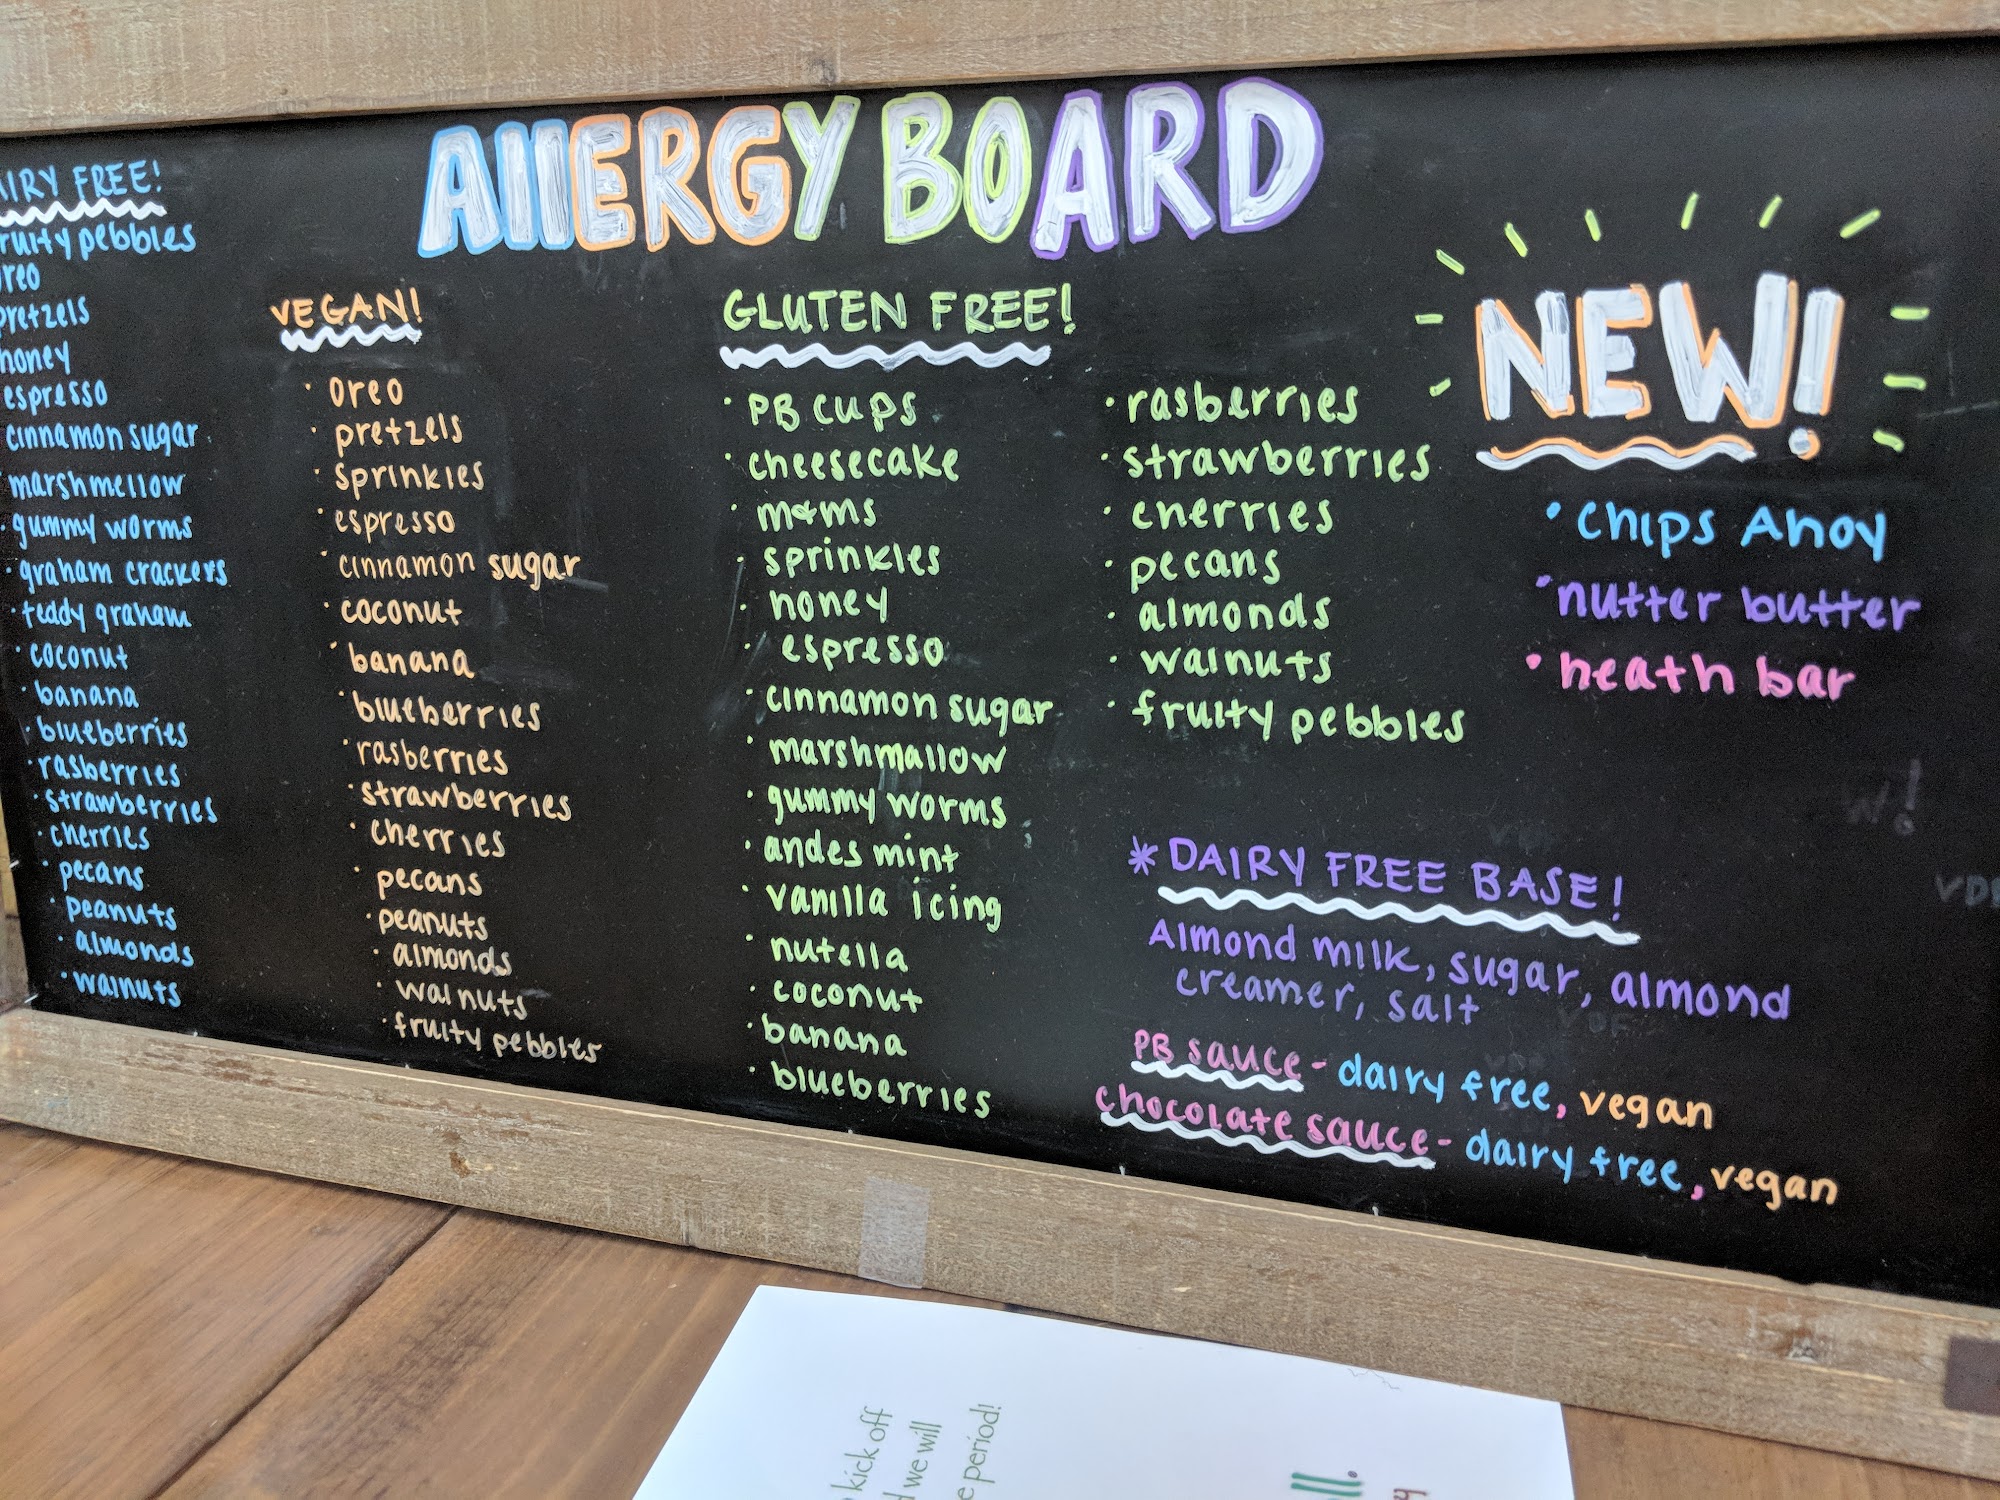 AllERGY BOARD
AIRY FREE!
ruity pebbles
oreo
pretzels
honey
espresso
cinnamon sugar
marshmellow
• gummy worms
• graham crackers
• teddy graham
• coconut
• banana
• blueberries
• rasberries
• strawberries
• cherries
• pecans
• peanuts
• almonds
• walnuts
VEGAN!
• oreo
• pretzels
• sprinkles
• espresso
• cinnamon sugar
• coconut
• banana
• blueberries
• rasberries
• strawberries
• cherries
• pecans
• peanuts
• almonds
• walnuts
• fruity pebbles
GLUTEN FREE!
• PB cups
• cheesecake
• m&ms
• sprinkles
• honey
• espresso
• cinnamon sugar
• marshmallow
• gummy worms
• andes mint
• vanilla icing
• nutella
• coconut
• banana
• blueberries
• rasberries
• strawberries
• cherries
• pecans
• almonds
• walnuts
• fruity pebbles
NEW!
• chips Ahoy
• nutter butter
• heath bar
* DAIRY FREE BASE!
Almond milk, sugar, almond
creamer, salt
PB sauce - dairy free, vegan
chocolate sauce - dairy free, vegan
kick off
we will
e period!